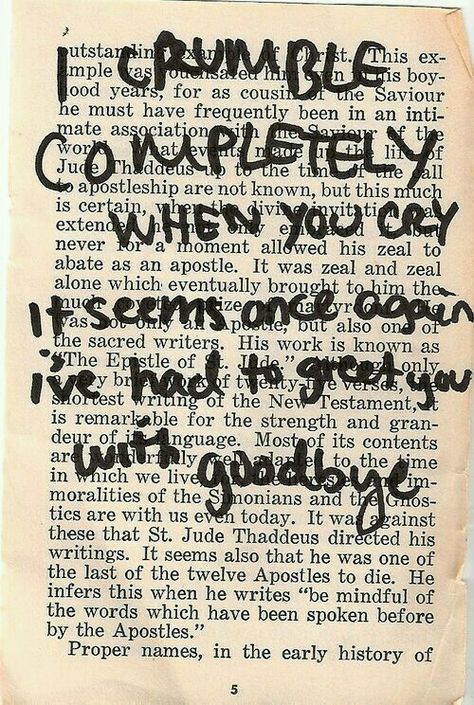 I CRUMBLE
COMPLETELY
WHEN YOU CRY
it seems once again
i've had to greet you
with goodbye
outstanding example of Christ. This ex-
ample was vouchsafed him even in his boy-
hood years, for as cousin of the Saviour
he must have frequently been in an inti-
mate association with the Saviour of the
world. What events made up the life of
Jude Thaddeus up to the time of the call
to apostleship are not known, but this much
is certain, when the divine invitation was
extended he not only embraced it but
never for a moment allowed his zeal to
abate as an apostle. It was zeal and zeal
alone which eventually brought to him the
much martyrdom. He
was not only an Apostle, but also one of
the sacred writers. His work is known as
"The Epistle of St. Jude." Although only
very brief work of twenty-five verses,
shortest writing of the New Testament, it
is remarkable for the strength and gran-
deur of its language. Most of its contents
are wonderfully well adapted to the time
in which we live, for the heresies and im-
moralities of the Simonians and the Gnos-
tics are with us even today. It was against
these that St. Jude Thaddeus directed his
writings. It seems also that he was one of
the last of the twelve Apostles to die. He
infers this when he writes "be mindful of
the words which have been spoken before
by the Apostles."
Proper names, in the early history of
5